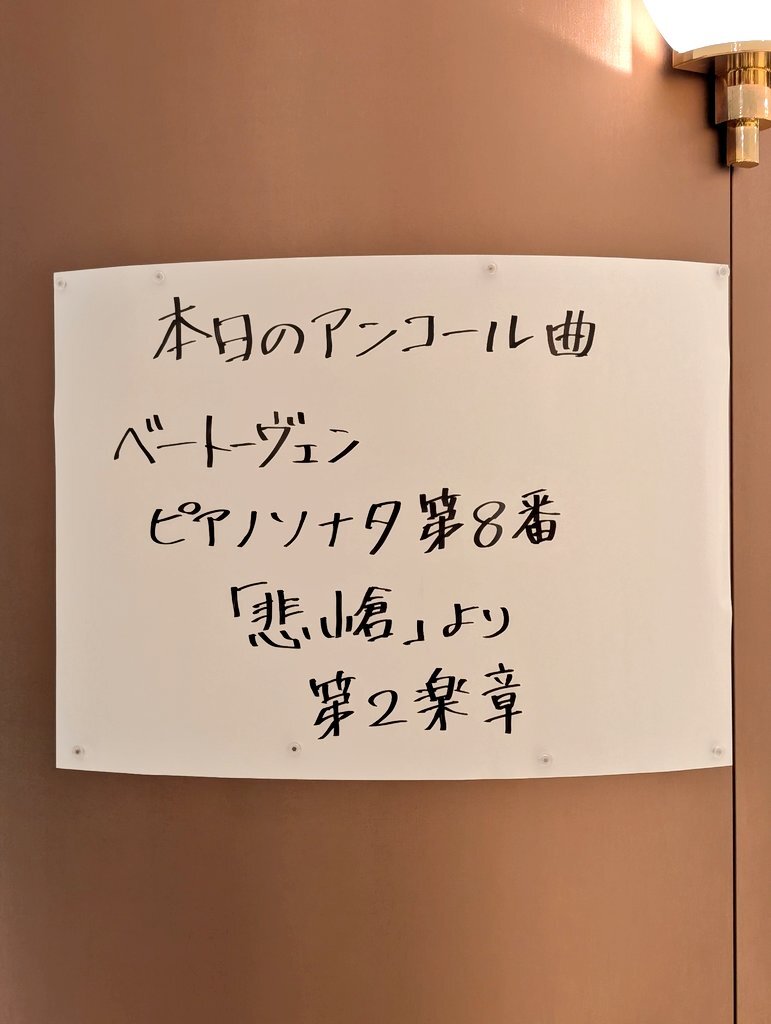 本日のアンコール曲
ベートーヴェン
ピアノソナタ第8番
「悲愴」より
第2楽章